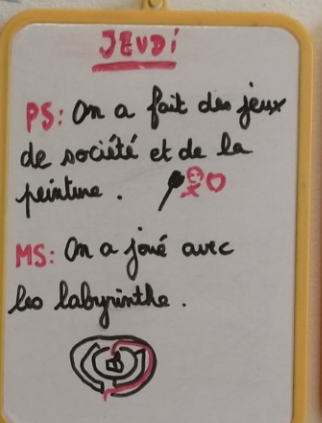 JEUDi
PS: On a fait des jeux
de société et de la
peinture.
MS: On a joué avec
les labyrinthe.